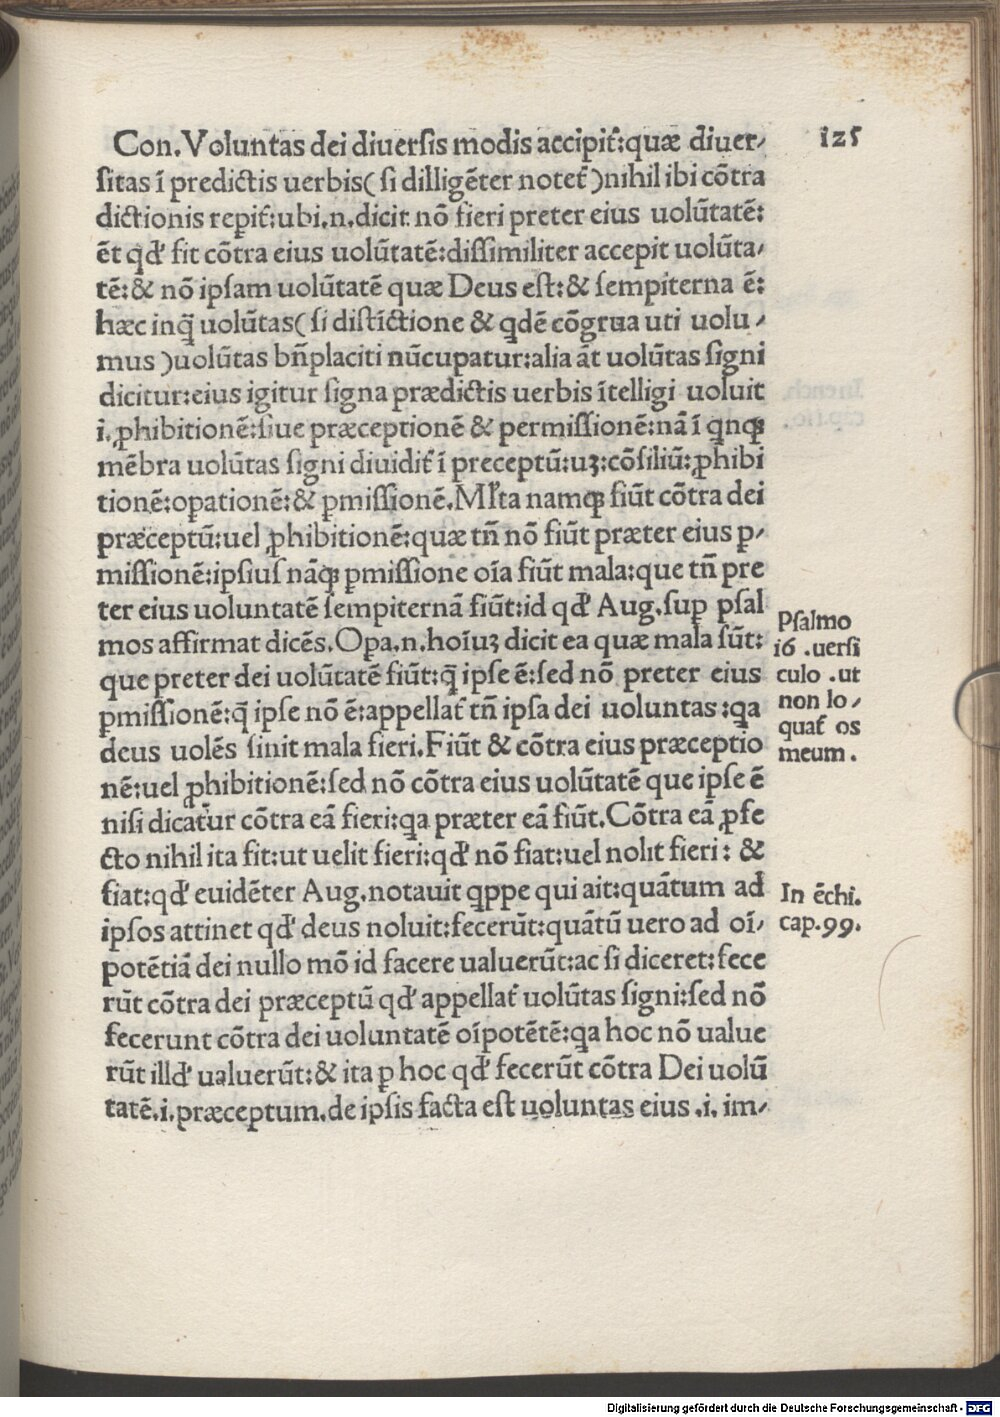 125
Con. Voluntas dei diuerſis modis accipit᷑: quæ diuer⸗
ſitas ī predictis uerbis ( ſi dilligēter notet᷑ ) nihil ibi cōtra
dictionis repit᷑: ubi .n. dicit nō fieri preter eius uolūtatē:
ēt qđ fit cōtra eius uolūtatē: diſſimiliter accepit uolūta⸗
tē: & nō ipſam uolūtatē quæ Deus eſt: & ſempiterna ē:
hæc inq̄ uolūtas ( ſi diſtīctione & qđē cōgrua uti uolu⸗
mus ) uolūtas bn̄placiti nūcupatur: alia āt uolūtas ſigni
dicitur: eius igitur ſigna prædictis uerbis ītelligi uoluit
.i. ꝓhibitionē: ſiue præceptionē & permiſſionē: nā ī qnqꝫ
mēbra uolūtas ſigni diuidit᷑ ī preceptū: uꝫ: cōſiliū: ꝓhibi
tionē: oꝑationē: & ꝑmiſſionē. Ml̄ta namqꝫ fiūt cōtra dei
præceptū: uel ꝓhibitionē: quæ tn̄ nō fiūt præter eius ꝑ⸗
miſſionē: ipſiuſ nāqꝫ ꝑmiſſione oīa fiūt mala: que tn̄ pre
ter eius uoluntatē ſempiternā fiūt: id qđ Aug. ſuꝑ pſal
mos affirmat dicēs. Opa .n. hoīuꝫ dicit ea quæ mala ſūt:
que preter dei uolūtatē fiūt: q̄ ipſe ē: ſed nō preter eius
ꝑmiſſionē: q̄ ipſe nō ē: appellat᷑ tn̄ ipſa dei uoluntas: qa
deus uolēs ſinit mala fieri. Fiūt & cōtra eius præceptio
nē: uel ꝓhibitionē: ſed nō cōtra eius uolūtatē que ipſe ē
niſi dicatur cōtra eā fieri: qa præter eā fiūt. Cōtra eā ꝓfe
cto nihil ita fit: ut uelit fieri: qđ nō fiat: uel nolit fieri: &
fiat: qđ euidēter Aug. notauit qppe qui ait: quātum ad
ipſos attinet qđ deus noluit: fecerūt: quātū uero ad oī⸗
potētiā dei nullo mō id facere ualuerūt: ac ſi diceret: fece
rūt cōtra dei præceptū qđ appellat᷑ uolūtas ſigni: ſed nō
fecerunt cōtra dei uoluntatē oīpotētē: qa hoc nō ualue
rūt illđ ualuerūt: & ita ꝑ hoc qđ fecerūt cōtra Dei uolū
tatē .i. præceptum. de ipſis facta eſt uoluntas eius .i. im⸗
Pſalmo
16 . uerſi
culo . ut
non lo⸗
quat᷑ os
meum .
In ēchi.
cap. 99.
Digitalisierung gefördert durch die Deutsche Forschungsgemeinschaft - DFG